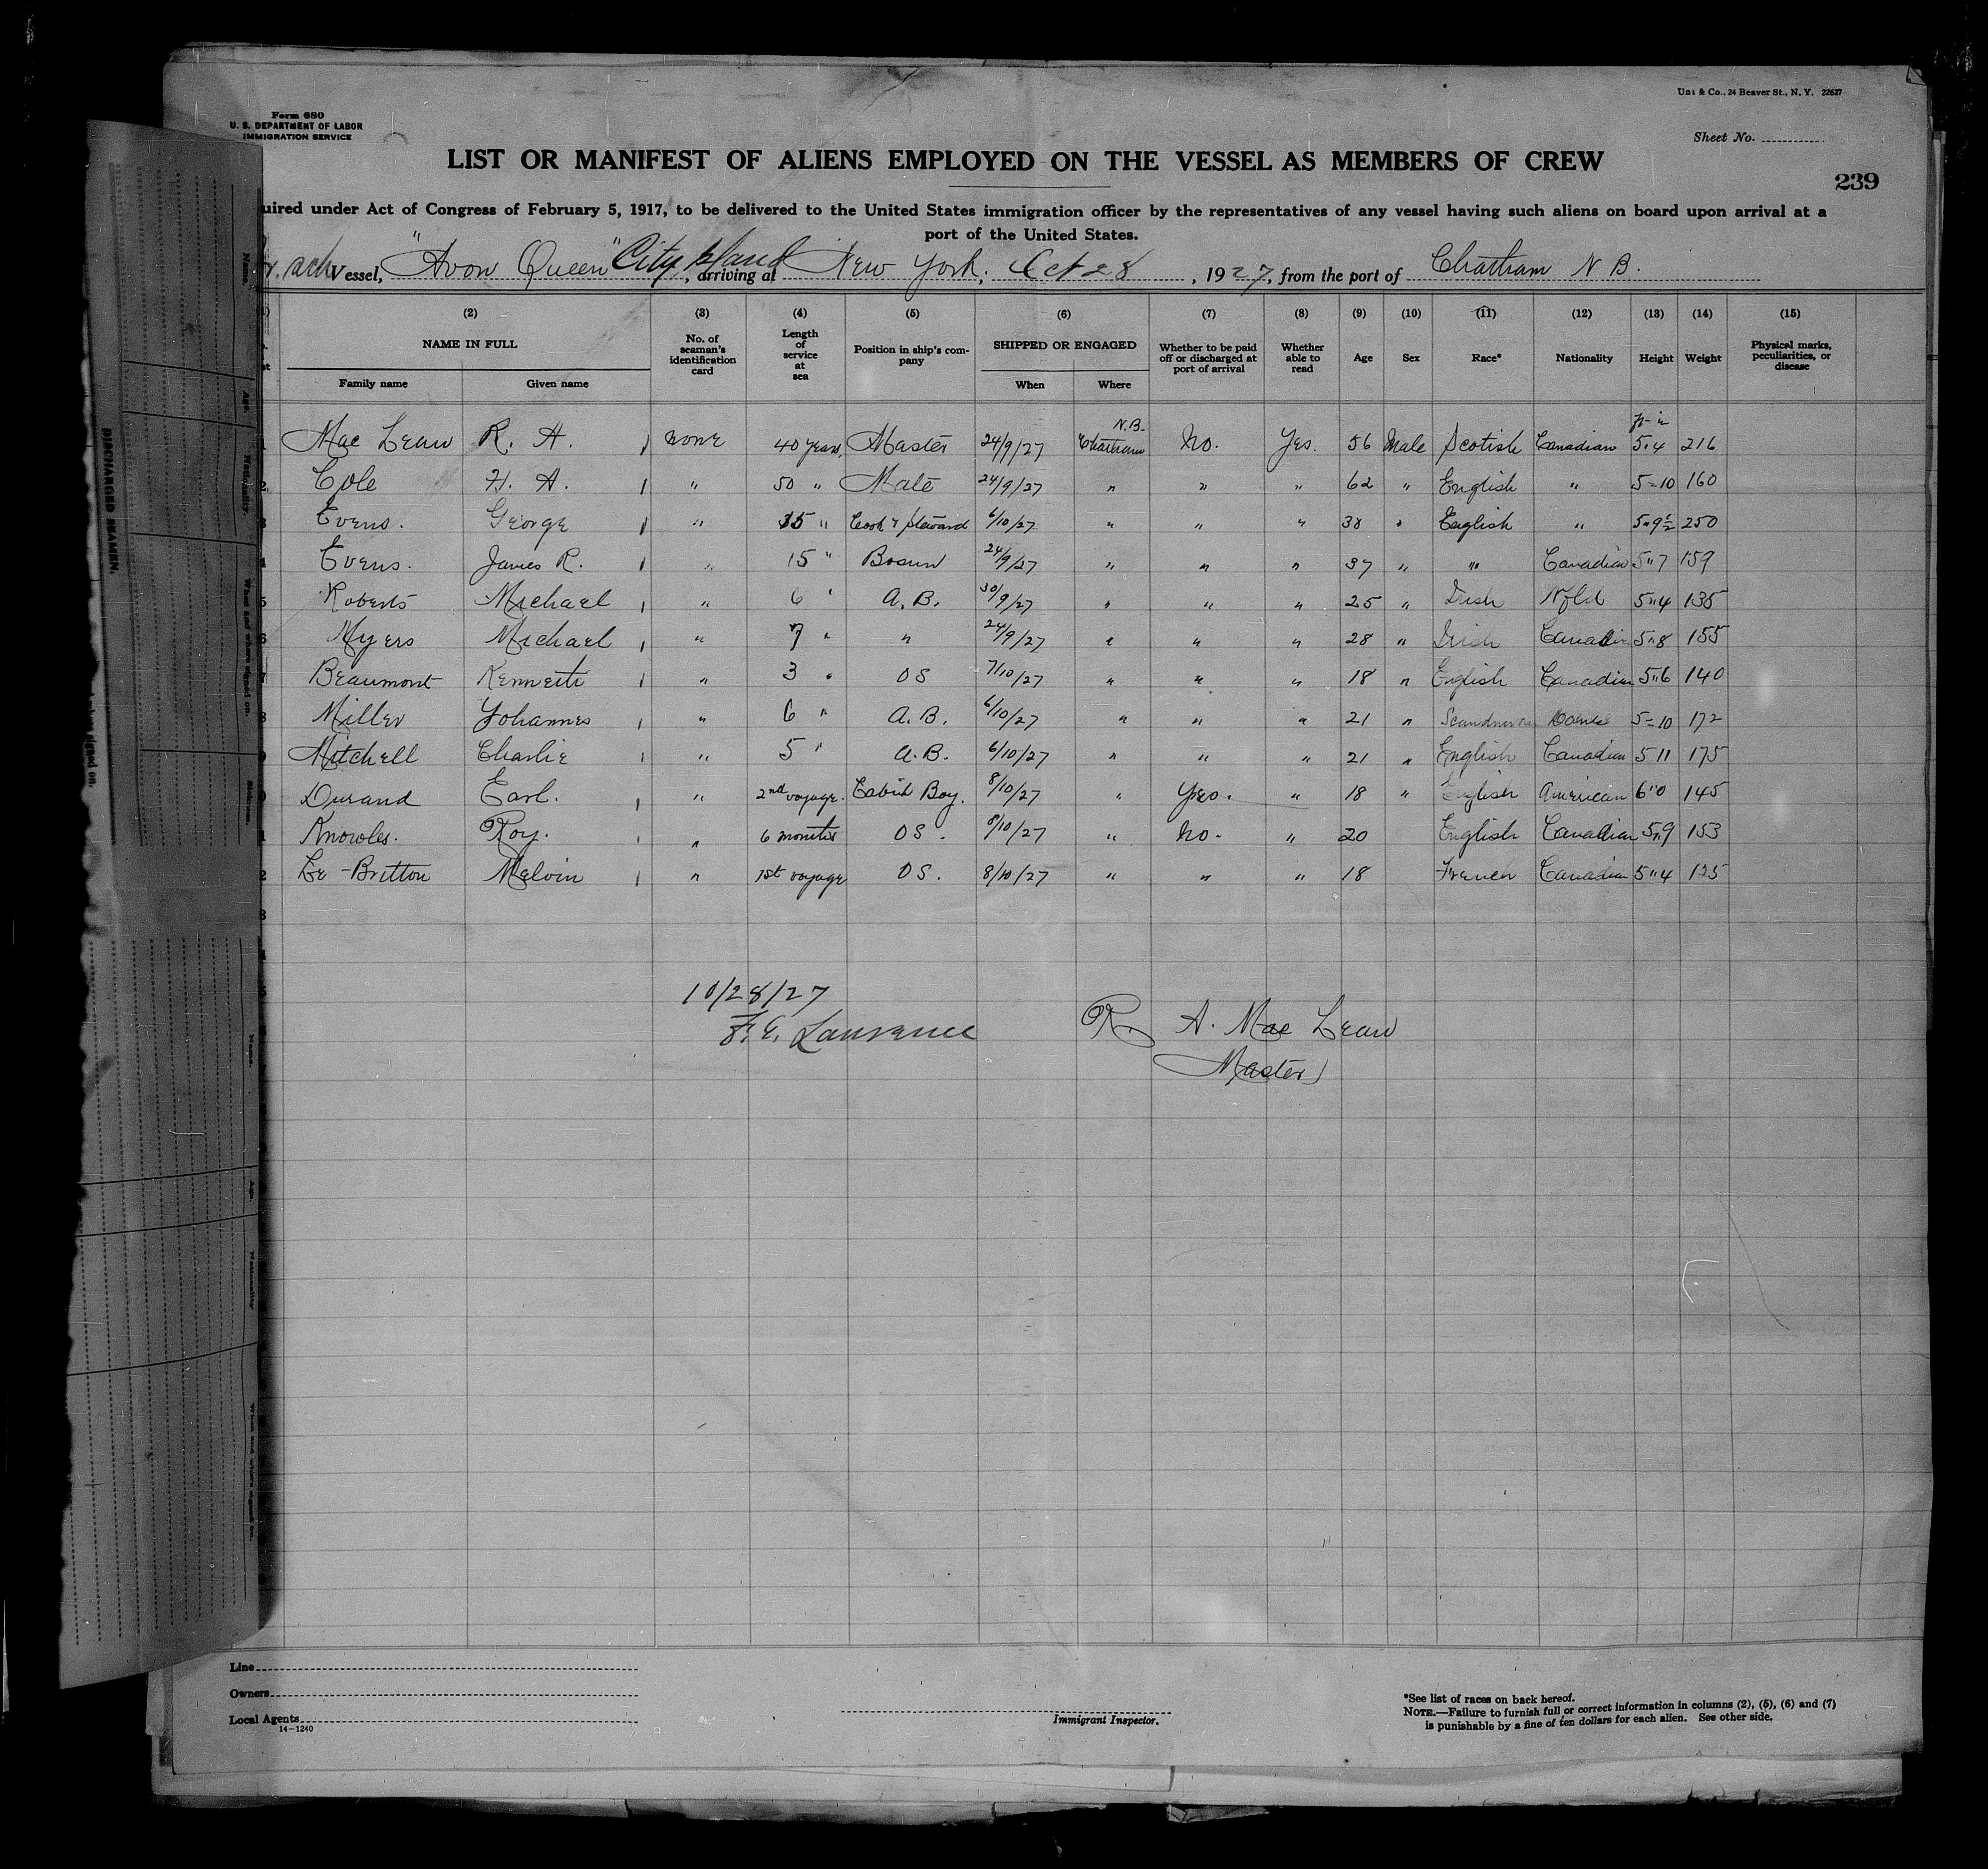 Form 680
U. S. DEPARTMENT OF LABOR
IMMIGRATION SERVICE
& Co., 24 Beaver St., N. Y. 22627
Sheet No.
LIST OR MANIFEST OF ALIENS EMPLOYED ON THE VESSEL AS MEMBERS OF CREW
239
uired under Act of Congress of February 5, 1917, to be delivered to the United States immigration officer by the representatives of any vessel having such aliens on board upon arrival at a
port of the United States.
Vessel, "Avon Queen" City Island, arriving at New York, Oct 28, 1927, from the port of Chatham N B.
(2) (3) (4) (5) (6) (7) (8) (9) (10) (11) (12) (13) (14) (15)
NAME IN FULL No. of seaman's identification card Length of service at sea Position in ship's company SHIPPED OR ENGAGED Whether to be paid off or discharged at port of arrival Whether able to read Age Sex Race* Nationality Height Weight Physical marks, peculiarities, or disease
Family name Given name When Where
Mac Lean R. A. None 40 years, Master 24/9/27 Chatham N.B. No. Yes. 56 Male Scotish Canadian 5.4 216
Cole H. A. " 50 " Mate 24/9/27 " " " 62 " English " 5=10 160
Evens. George " 15 " Cook & Steward 6/10/27 " " " 38 " English " 5"9½ 250
Evens. James R. " 15 " Bosun 24/9/27 " " " 37 " " Canadian 5"7 159
Roberts Michael " 6 " A.B. 30/9/27 " " " 25 " Irish Nfld 5"4 135
Myers Michael " 7 " " 24/9/27 " " " 28 " Irish Canadin 5"8 155
Beaumont Kenneth " 3 " OS 7/10/27 " " " 18 " English Canadian 5"6 140
Miller Yohannes " 6 " A.B. 6/10/27 " " " 21 " 5=10 172
Mitchell Charlie " 5 " A.B. 6/10/27 " " " 21 " English Canadian 5 11 175
Durand Earl. " 2nd voyage. Cabin Boy. 8/10/27 " Yes. " 18 " English American 6"0 145
Knowles. Roy. " 6 months OS. 8/10/27 " No. " 20 English Canadian 5"9 153
Le-Britton Melvin " 1st voyage OS. 8/10/27 " " " 18 French Canadian 5"4 125
10/28/27
F. E. Lawrence
R. A. Mac Lean
Master
Line
Owners
Local Agents
14-1240
Immigrant Inspector.
*See list of races on back hereof.
NOTE.—Failure to furnish full or correct information in columns (2), (5), (6) and (7)
is punishable by a fine of ten dollars for each alien. See other side.
DISCHARGED SEAMEN,